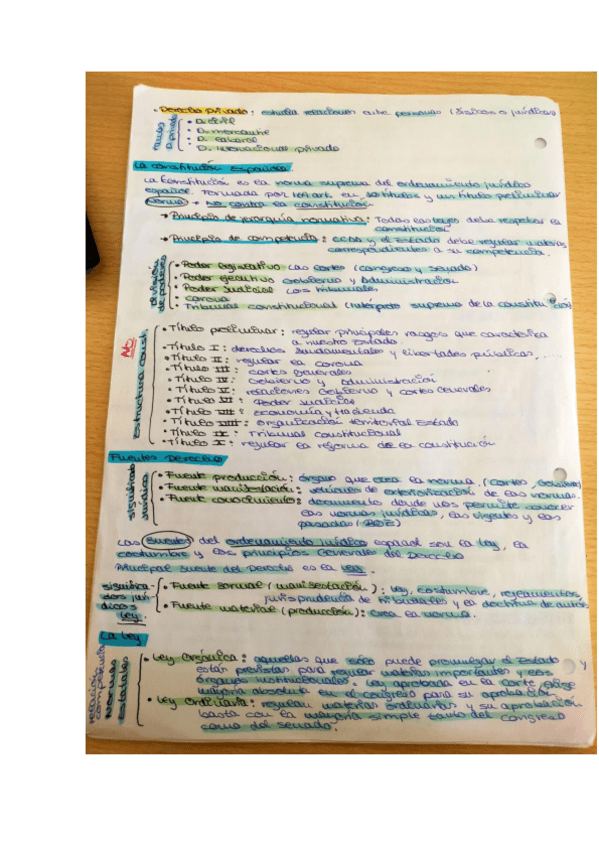 • Derecho privado: estudia relaciones entre personas (físicas o jurídicas)
ramas D. privado
• D. civil
• D. mercantil
• D. laboral
• D. internacional privado
La constitución Española
La Constitución es la norma suprema del ordenamiento jurídico
español. Formada por 169 art. en 10 títulos y un título preliminar
Norma → No contra la constitución
→ Principio de jerarquía normativa: Todas las leyes debe respetar la
constitución
→ Principio de competencia: CCAA y el Estado debe regular materias
correspondientes a su competencia.
división de poderes
• Poder legislativo Las Cortes (Congreso y Senado)
• Poder ejecutivo Gobierno y Administración
• Poder Judicial Los tribunales
• Corona
• Tribunal constitucional (intérprete supremo de la constitución)
NO
Estructura const.
• Título preliminar: regular principales rasgos que caracteriza
a nuestro Estado.
• Título I: derechos fundamentales y libertades públicas, ....
• Título II: regular la corona
• Título III: Cortes Generales
• Título IV: Gobierno y administración
• Título V: relaciones Gobierno y Cortes Generales
• Título VI: Poder Judicial
• Título VII: economía y hacienda
• Título VIII: organización territorial Estado
• Título IX: Tribunal constitucional
• Título X: regular la reforma de la constitución
Fuentes Derecho
significado Jurídico
• Fuente producción: órgano que crea la norma. (Cortes,
• Fuente manifestación: vehículos de exteriorización de las normas.
• Fuente conocimiento: documento donde nos permite conocer
las normas jurídicas, las vigentes y las
pasadas (BOE)
Las fuentes del ordenamiento jurídico español son la ley, la
costumbre y los principios Generales del Derecho
Principal fuente del Derecho es la ley.
significados jurídicos Ley
• Fuente formal (manifestación): ley, costumbre, reglamentos,
jurisprudencia de tribunales y la doctrina de autores
• Fuente material (producción): crea la norma.
La ley
relación competencia
Normas Estatales
• Ley Orgánica: aquellas que sólo puede promulgar el Estado y
están previstas para regular materias importantes y los
órganos institucionales. Ley aprobada en la Corte exige
mayoría absoluta en el congreso para su aprobación
• Ley Ordinaria: regulan materias ordinarias y su aprobación
basta con la mayoría simple tanto del Congreso
como del senado.